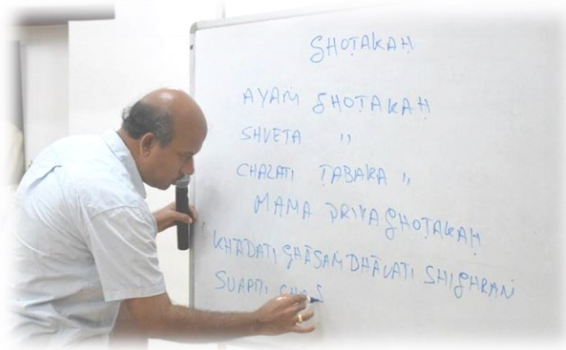 GHOṬAKAḤ
AYAM GHOṬAKAḤ
SHVETA "
CHALATI ṬABAKA "
MAMA PRIYA GHOṬAKAḤ
KHĀDATI GHĀSAM DHĀVATI SHIGHRAM
SVAPITI